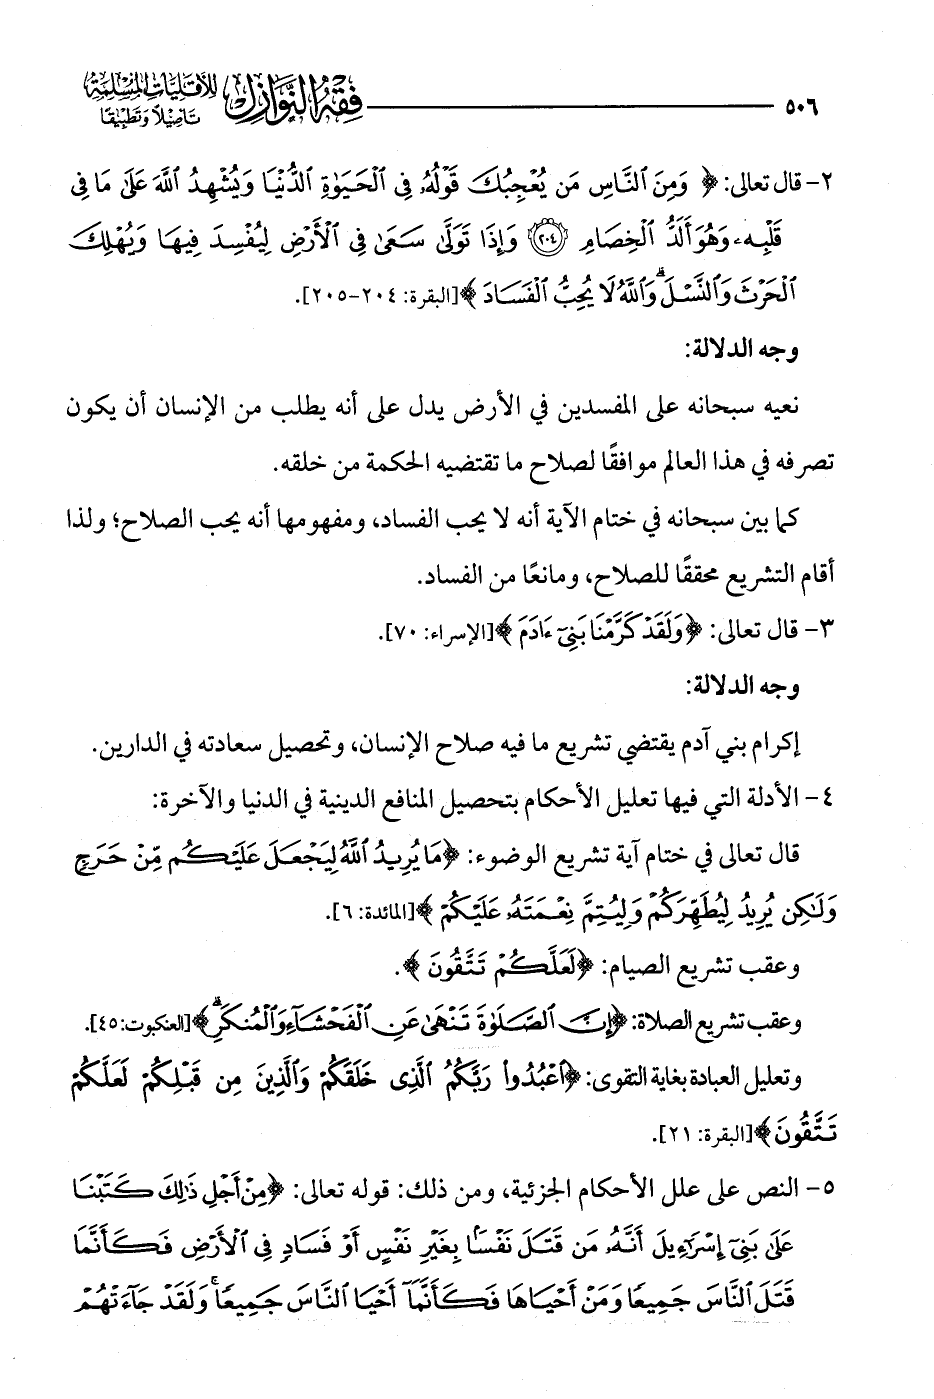 ٥٠٦ فقه النوازل للأقليات المسلمة
تأصيلاً وتطبيقًا
٢- قال تعالى: ﴿ وَمِنَ ٱلنَّاسِ مَن يُعْجِبُكَ قَوْلُهُۥ فِى ٱلْحَيَوٰةِ ٱلدُّنْيَا وَيُشْهِدُ ٱللَّهَ عَلَىٰ مَا فِى
قَلْبِهِۦ وَهُوَ أَلَدُّ ٱلْخِصَامِ ﴿٢٠٤﴾ وَإِذَا تَوَلَّىٰ سَعَىٰ فِى ٱلْأَرْضِ لِيُفْسِدَ فِيهَا وَيُهْلِكَ
ٱلْحَرْثَ وَٱلنَّسْلَ ۗ وَٱللَّهُ لَا يُحِبُّ ٱلْفَسَادَ ﴾ [البقرة: ٢٠٤-٢٠٥].
وجه الدلالة:
نعيه سبحانه على المفسدين في الأرض يدل على أنه يطلب من الإنسان أن يكون
تصرفه في هذا العالم موافقًا لصلاح ما تقتضيه الحكمة من خلقه.
كما بين سبحانه في ختام الآية أنه لا يحب الفساد، ومفهومها أنه يحب الصلاح؛ ولذا
أقام التشريع محققًا للصلاح، ومانعًا من الفساد.
٣- قال تعالى: ﴿وَلَقَدْ كَرَّمْنَا بَنِىٓ ءَادَمَ ﴾ [الإسراء: ٧٠].
وجه الدلالة:
إكرام بني آدم يقتضي تشريع ما فيه صلاح الإنسان، وتحصيل سعادته في الدارين.
٤- الأدلة التي فيها تعليل الأحكام بتحصيل المنافع الدينية في الدنيا والآخرة:
قال تعالى في ختام آية تشريع الوضوء: ﴿مَا يُرِيدُ ٱللَّهُ لِيَجْعَلَ عَلَيْكُم مِّنْ حَرَجٍ
وَلَٰكِن يُرِيدُ لِيُطَهِّرَكُمْ وَلِيُتِمَّ نِعْمَتَهُۥ عَلَيْكُمْ ﴾ [المائدة: ٦].
وعقب تشريع الصيام: ﴿لَعَلَّكُمْ تَتَّقُونَ ﴾.
وعقب تشريع الصلاة: ﴿إِنَّ ٱلصَّلَوٰةَ تَنْهَىٰ عَنِ ٱلْفَحْشَآءِ وَٱلْمُنكَرِ ۗ﴾ [العنكبوت: ٤٥].
وتعليل العبادة بغاية التقوى: ﴿ٱعْبُدُوا۟ رَبَّكُمُ ٱلَّذِى خَلَقَكُمْ وَٱلَّذِينَ مِن قَبْلِكُمْ لَعَلَّكُمْ
تَتَّقُونَ﴾ [البقرة: ٢١].
٥- النص على علل الأحكام الجزئية، ومن ذلك: قوله تعالى: ﴿مِنْ أَجْلِ ذَٰلِكَ كَتَبْنَا
عَلَىٰ بَنِىٓ إِسْرَٰٓءِيلَ أَنَّهُۥ مَن قَتَلَ نَفْسًۢا بِغَيْرِ نَفْسٍ أَوْ فَسَادٍ فِى ٱلْأَرْضِ فَكَأَنَّمَا
قَتَلَ ٱلنَّاسَ جَمِيعًا وَمَنْ أَحْيَاهَا فَكَأَنَّمَآ أَحْيَا ٱلنَّاسَ جَمِيعًا ۚ وَلَقَدْ جَآءَتْهُمْ